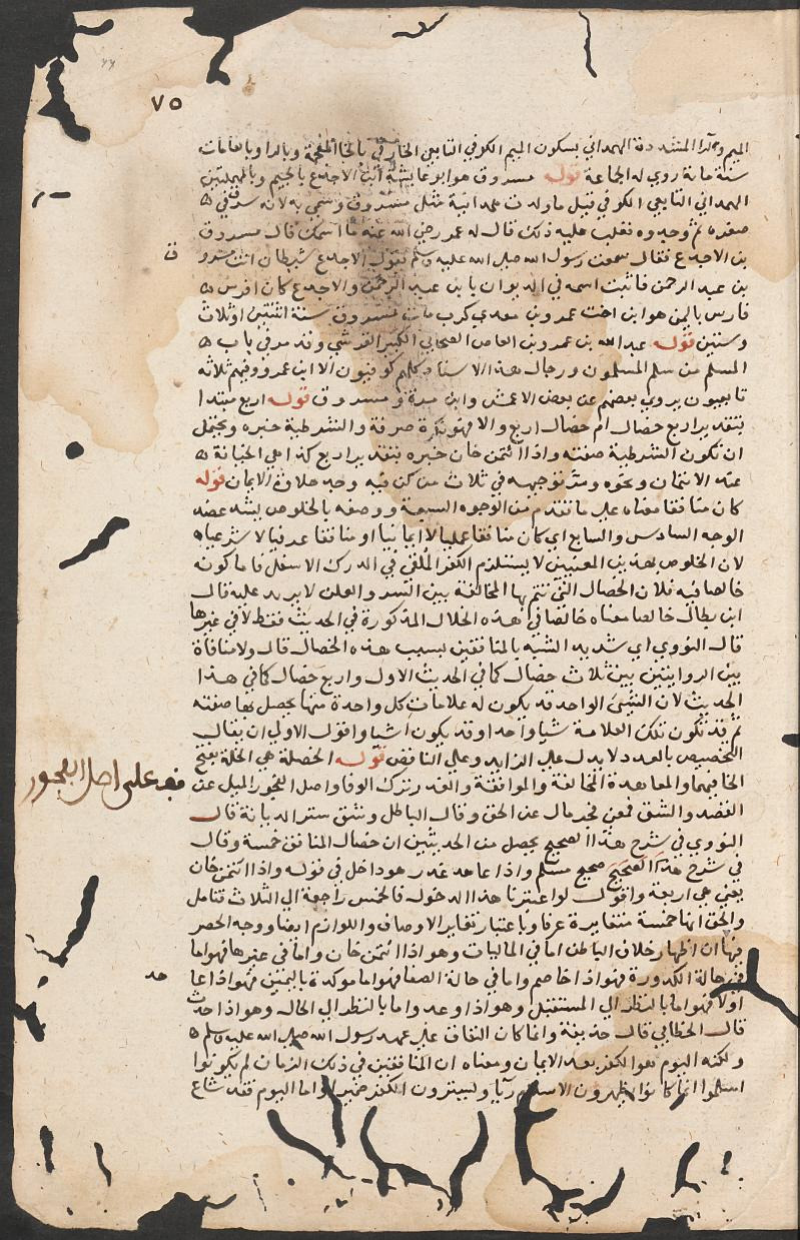 ٧٥
الميم والراء المشددة الهمداني بسكون الميم الكوفي التابعي الخارفي بالخا المعجمة وبالرا وبالفا مات
سنة ماية روي له الجماعة قوله مسروق هو ابو عايشة ابن الاجدع بالجيم وبالمهملتين
الهمداني التابعي الكوفي قيل ما ولدت همدانية مثل مسروق وسمي به لانه سرق في
صغره ثم وجدوه فغلب عليه ذلك قال له عمر رضي الله عنه ما اسمك قال مسروق
بن الاجدع فقال سمعت رسول الله صلى الله عليه وسلم يقول الاجدع شيطان انت مسرو
ق
بن عبد الرحمن فاثبت اسمه في الديوان يا بن عبد الرحمن والاجدع كان افرس
فارس باليمن هو ابن اخت عمرو بن معدي كرب مات مسروق سنة اثنتين او ثلاث
وستين قوله عبد الله بن عمرو بن العاص الصحابي الكبير القرشي وقد مر في باب
المسلم من سلم المسلمون ورجال هذا الاسناد كلهم كوفيون الا ابن عمرو وفيهم ثلاثه
تابعيون يروي بعضهم عن بعض الاعمش وابن مرة ومسروق قوله اربع مبتدا
بتقدير اربع خصال ام خصال اربع والا فهو نكرة صرفة والشرطية خبره ويحتمل
ان تكون الشرطية صفته واذا اؤتمن خان خبره بتقدير اربع كذا هي الخيانة
عند الائتمان ونحوه ومر توجيهه في ثلاث من كن فيه وجد حلاوة الايمان قوله
كان منافقا معناه على ما تقدم من الوجوه السبعة ووصفه بالخلوص يشد عضد
الوجه السادس والسابع اي كان منافقا عمليا لا ايمانيا او منافقا عرفيا لا شرعيا
لان الخلوص بهذين المعنيين لا يستلزم الكفر الملقي في الدرك الاسفل فاما كونه
خالصا فيه فلان الخصال التي تتم بها المخالفة بين السر والعلن لا يريد عليه قال
ابن بطال خالصا معناه خالصا في هذه الخلال المذكورة في الحديث فقط لا في غيرها
قال النووي اي شديد الشبه بالمنافقين بسبب هذه الخصال قال ولا منافاة
بين الروايتين بين ثلاث خصال كما في الحديث الاول واربع خصال كما في هذا
الحديث لان الشيئ الواحد قد يكون له علامات كل واحدة منها يحصل بها صفته
ثم قد تكون تلك العلامة شيا واحدا وقد يكون اشيا واقول الاولي ان يقال
التخصيص بالعدد لا يدل على الزايد وعلى الناقص قوله الخصلة هي الخلة بفتح
الخا فيهما والمعاهدة المخالفة والموافقة والغدر ترك الوفا واصل الفجور الميل عن
قف على اصل الفجور
القصد والشق فمعنى فجر مال عن الحق وقال الباطل وشق ستر الديانة قال
النووي في شرح هذا الصحيح يحصل من الحديثين ان خصال المنافق خمسة وقال
في شرح صحيح مسلم واذا عاهد غدر هو داخل في قوله واذا اؤتمن خان
يعني هي اربعة واقول لو اعتبرنا هذا الدخول فالخمس راجعة الي الثلاث فتامل
والحق انها خمسة متغايرة عرفا وباعتبار تغاير الاوصاف واللوازم ايضا ووجه الحصر
فيها ان اظهار خلاف الباطن اما في الماليات وهو اذا اؤتمن خان واما في غيرها فهو اما
في حالة الكدورة فهو اذا خاصم واما في حالة الصفا فهو اما موكدة باليمين فهو اذا عا
هد
اولا فهو اما بالنظر الي المستقبل وهو اذا وعد واما بالنظر الي الحال وهو اذا حدث
قال الخطابي قال حذيفة وانما كان النفاق على عهد رسول الله صلى الله عليه وسلم
ولكنه اليوم هو الكفر بعد الايمان ومعناه ان المنافقين في ذلك الزمان لم يكونوا
اسلموا انما كانوا يظهرون الاسلام ريا ويسترون الكفر ضميرا واما اليوم فقد شاع